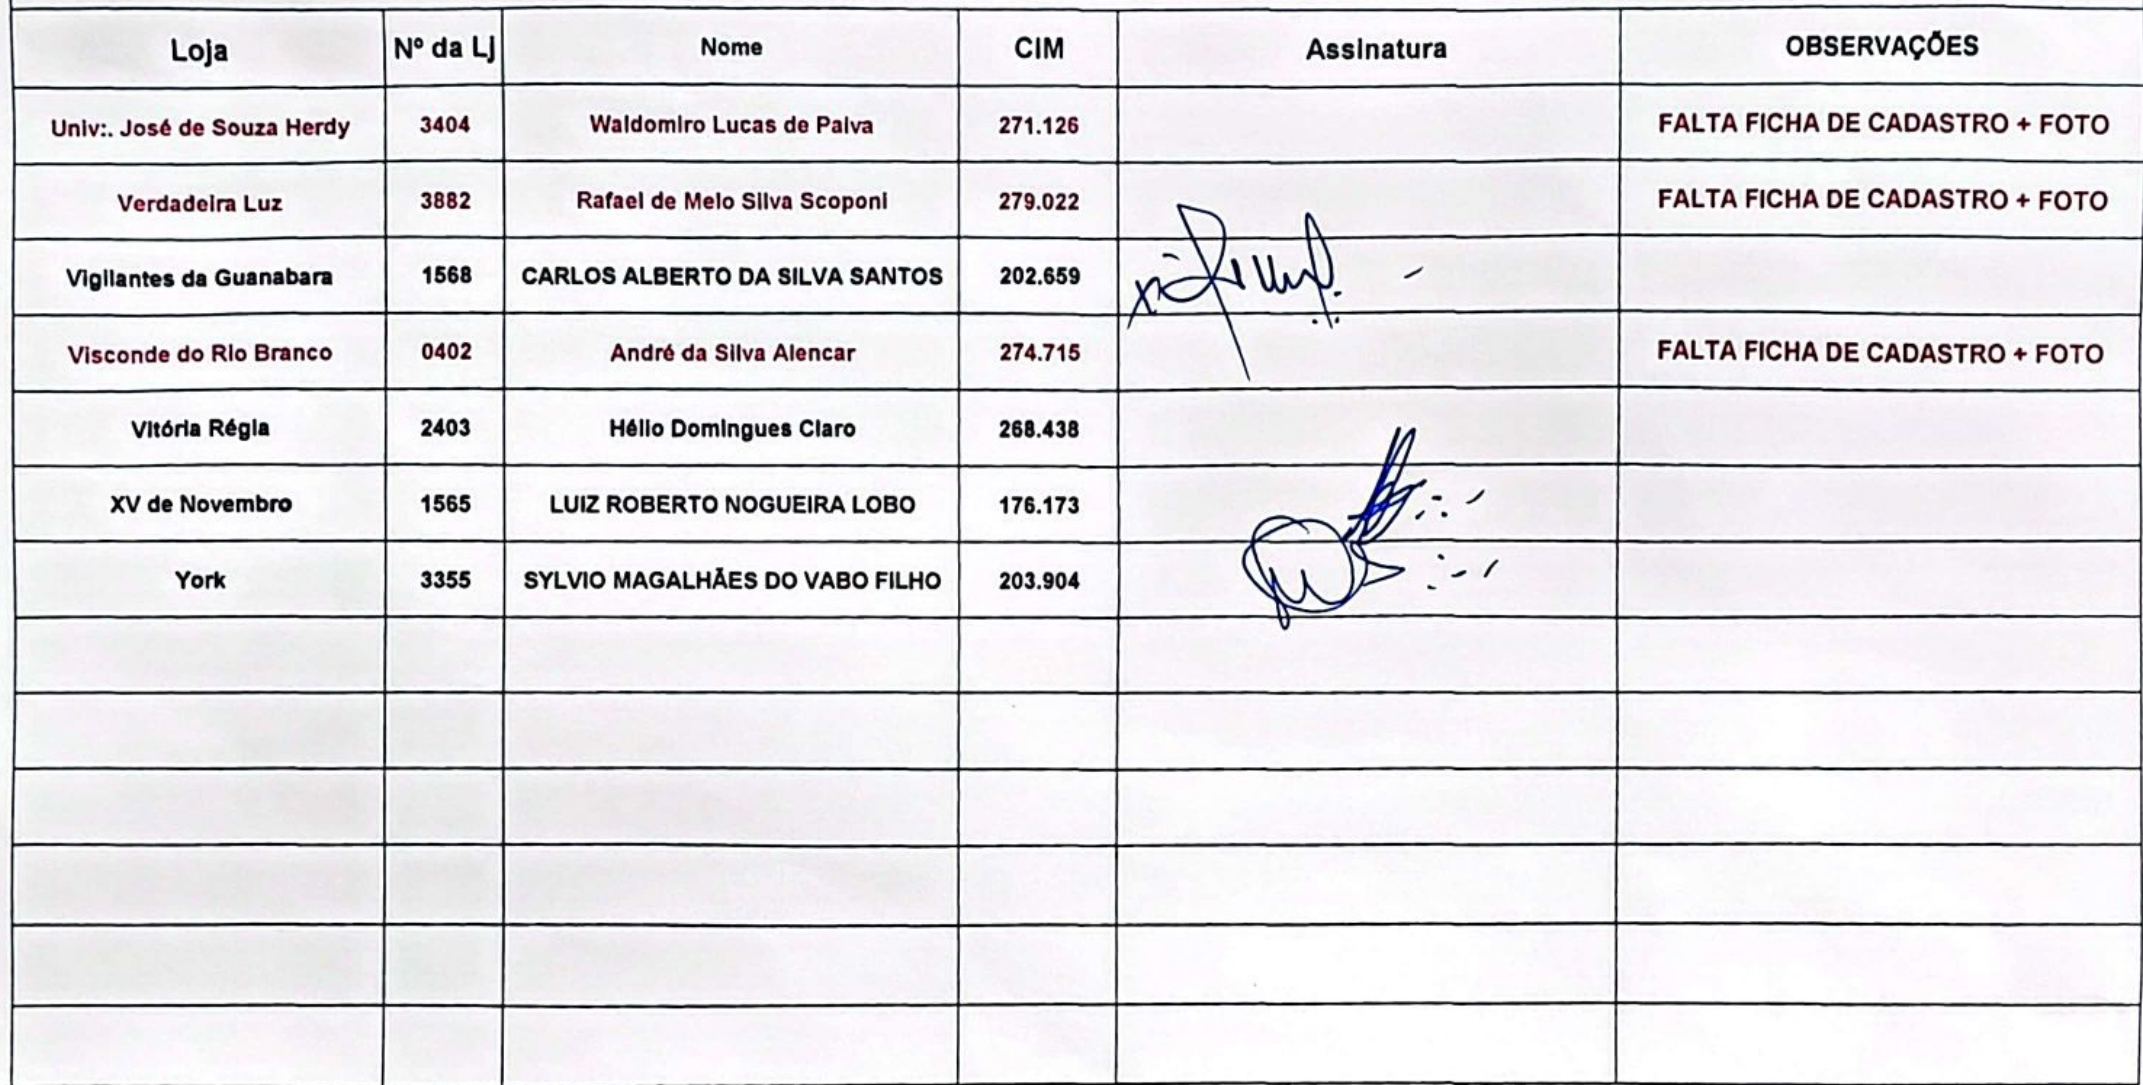 Loja Nº da Lj Nome CIM Assinatura OBSERVAÇÕES
Univ:. José de Souza Herdy 3404 Waldomiro Lucas de Paiva 271.126 FALTA FICHA DE CADASTRO + FOTO
Verdadeira Luz 3882 Rafael de Melo Silva Scoponi 279.022 FALTA FICHA DE CADASTRO + FOTO
Vigilantes da Guanabara 1568 CARLOS ALBERTO DA SILVA SANTOS 202.659
Visconde do Rio Branco 0402 André da Silva Alencar 274.715 FALTA FICHA DE CADASTRO + FOTO
Vitória Régia 2403 Hélio Domingues Claro 268.438
XV de Novembro 1565 LUIZ ROBERTO NOGUEIRA LOBO 176.173
York 3355 SYLVIO MAGALHÃES DO VABO FILHO 203.904